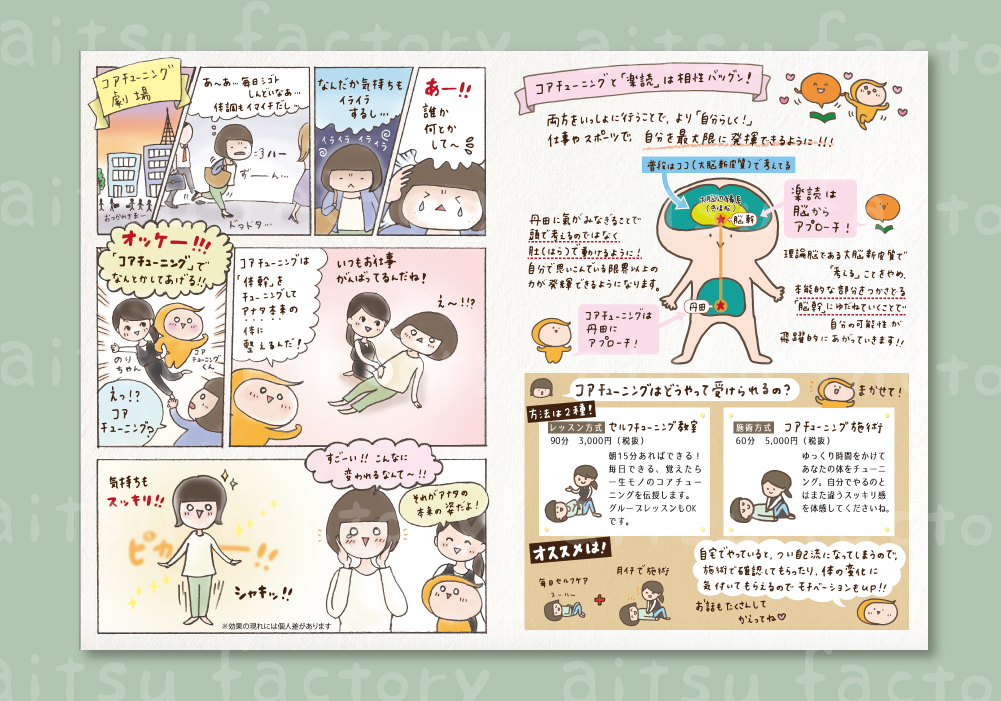 aitsu factory
aitsu factory
コアチューニング
劇場
あ〜あ…毎日シゴト
しんどいなあ…
体調もイマイチだし…
おつかれさまー
ずーん…
ドヨドヨ…
なんだか気持ちも
イライラ
するし…
イライラ イライラ
あー!!
誰か
何とか
して〜
オッケー!!!
「コアチューニング」で
なんとかしてあげる!!
のり
ちゃん
コア
チューニング
くん
えっ!?
コア
チューニング?
コアチューニングは
「体幹」を
チューニングして
アナタ本来の
体に
整えるんだ!
いつもお仕事
がんばってるんだね!
え〜!!?
気持ちも
スッキリ!!
ピカーー!!
シャキッ!!
※効果の現れには個人差があります
すごーい!! こんなに
変われるなんて〜!!
それがアナタの
本来の姿だよ!
コアチューニングと「楽読」は相性バツグン!
両方をいっしょに行うことで、より「自分らしく!」
仕事やスポーツで、自分を最大限に発揮できるように!!!
普段はココ(大脳新皮質)で考えてる
脳幹
楽読は
脳から
アプローチ!
丹田に氣がみなぎることで
頭で考えるのではなく
肚(はら)で動けるように!
自分で思いこんでいる限界以上の
力が発揮できるようになります。
丹田
コアチューニングは
丹田に
アプローチ!
理論脳である大脳新皮質で
「考える」ことをやめ、
本能的な部分をつかさどる
「脳幹」にゆだねていくことで…
自分の可能性が
飛躍的にあがっていきます!!
コアチューニングはどうやって受けられるの?
まかせて!
方法は2種!
レッスン方式 セルフチューニング教室
90分 3,000円(税抜)
朝15分あればできる!
毎日できる、覚えたら
一生モノのコアチュー
ニングを伝授します。
グループレッスンもOK
です。
施術方式 コアチューニング施術
60分 5,000円(税抜)
ゆっくり時間をかけて
あなたの体をチューニ
ング。自分でやるのと
はまた違うスッキリ感
を体感してくださいね。
オススメは!
毎日セルフケア
スーハー
+
月イチで施術
自宅でやっていると、つい自己流になってしまうので、
施術で確認してもらったり、体の変化に
気付いてもらえるのでモチベーションもUP!!
お話もたくさんして
かえってね♡
aitsu factory
aitsu factory